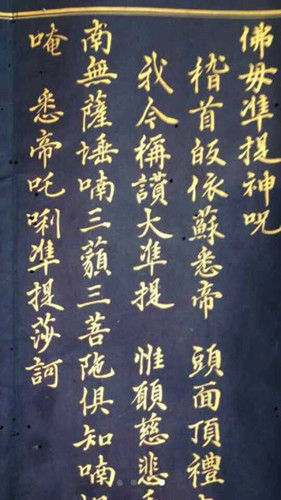 佛母準提神呪
稽首皈依蘇悉帝　頭面頂禮
我今稱讃大準提　惟願慈悲
南無薩埵喃三藐三菩陁俱知喃
唵　悉帝吒唎準提莎訶